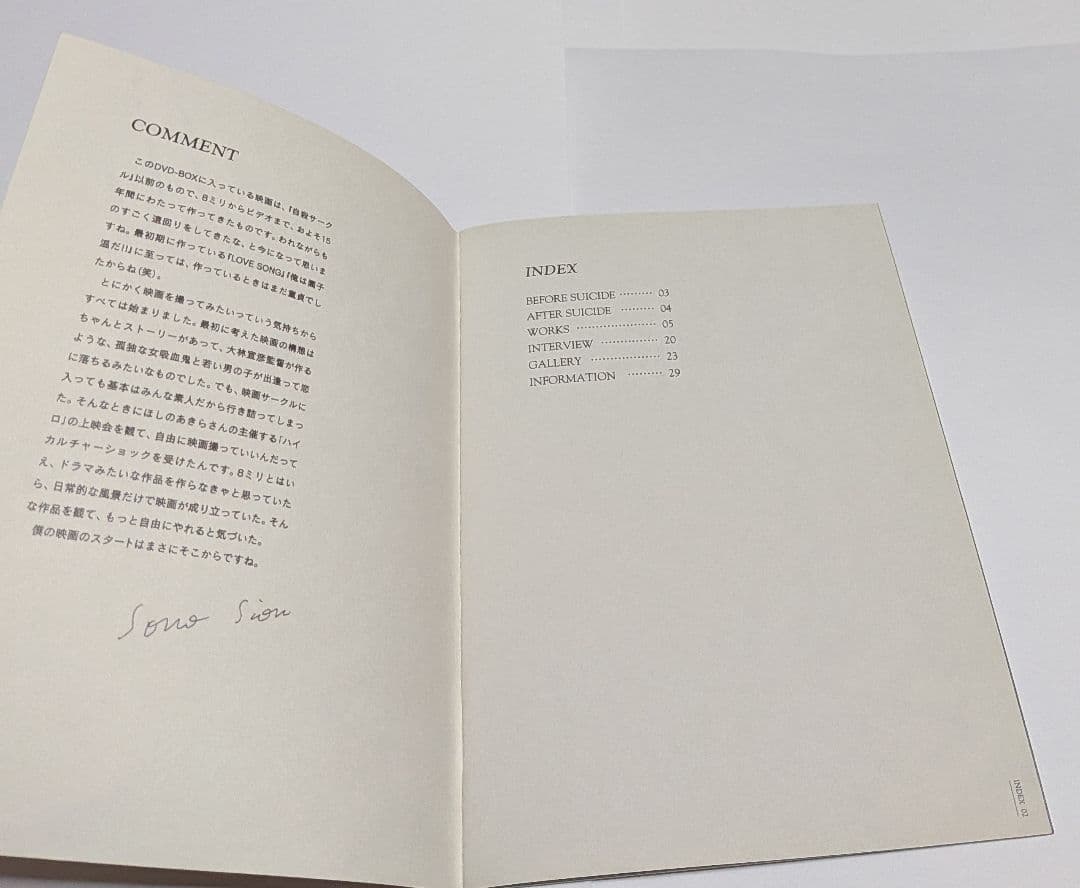 COMMENT
このDVD-BOXに入っている映画は、『自殺サーク
ル』以前のもので、8ミリからビデオまで、およそ15
年間にわたって作ってきたものです。われながらも
のすごく遠回りをしてきたな、と今になって思いま
すね。最初期に作っている『LOVE SONG』『俺は園子
温だ!!』に至っては、作っているときはまだ童貞でし
たからね(笑)。
とにかく映画を撮ってみたいっていう気持ちから
すべては始まりました。最初に考えた映画の構想は
ちゃんとストーリーがあって、大林宣彦監督が作る
ような、孤独な女吸血鬼と若い男の子が出逢って恋
に落ちるみたいなものでした。でも、映画サークルに
入っても基本はみんな素人だから行き詰ってしまっ
た。そんなときにほしのあきらさんの主催する「ハイ
ロ」の上映会を観て、自由に映画撮っていいんだって
カルチャーショックを受けたんです。8ミリとはい
え、ドラマみたいな作品を作らなきゃと思っていた
ら、日常的な風景だけで映画が成り立っていた。そん
な作品を観て、もっと自由にやれると気づいた。
僕の映画のスタートはまさにそこからですね。
Sono Sion
INDEX
BEFORE SUICIDE ········· 03
AFTER SUICIDE ········· 04
WORKS ····················· 05
INTERVIEW ··············· 20
GALLERY ·················· 23
INFORMATION ········· 29
INDEX 02